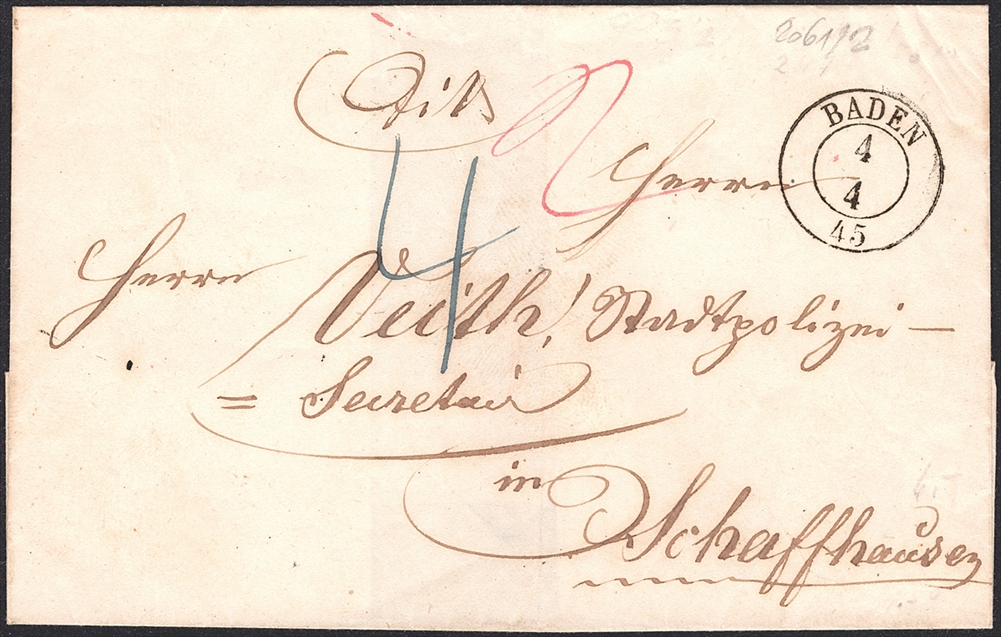 2061/2
Tit.
BADEN
4
4
45
4
Herrn
Herrn Veith, Stadtpolizei –
= Secretair
in
Schaffhausen